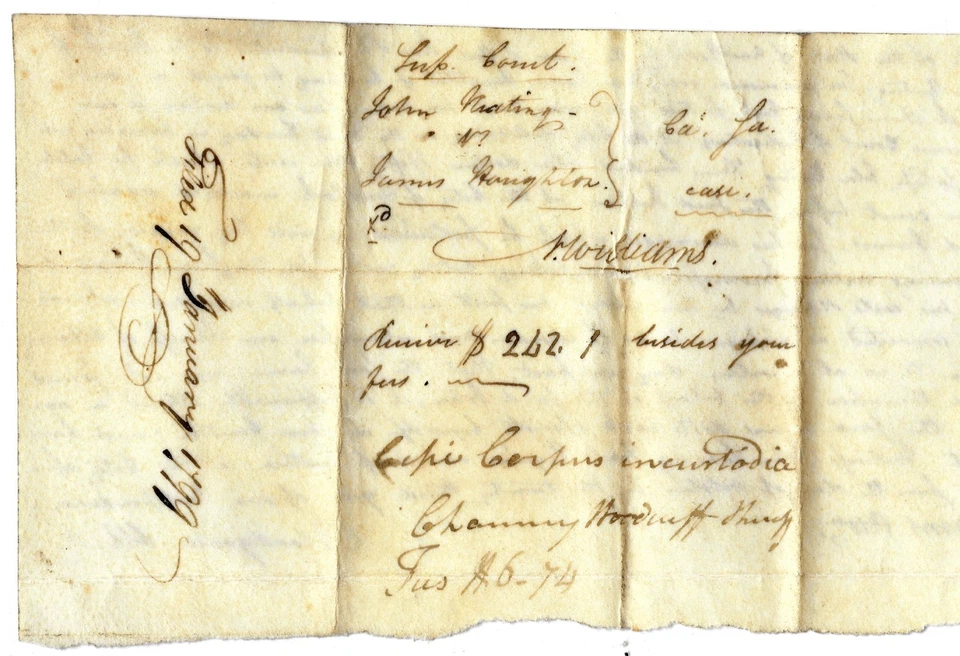 Sup. Court.
John Keating
vs
James Houghton.
Ca. Sa.
case.
N. Williams.
Receive $ 242. 9 besides your
fees.
Cepi Corpus in custodia
Chauncy Woodruff Shff
Fees $6-74
Filed 19 January 1799